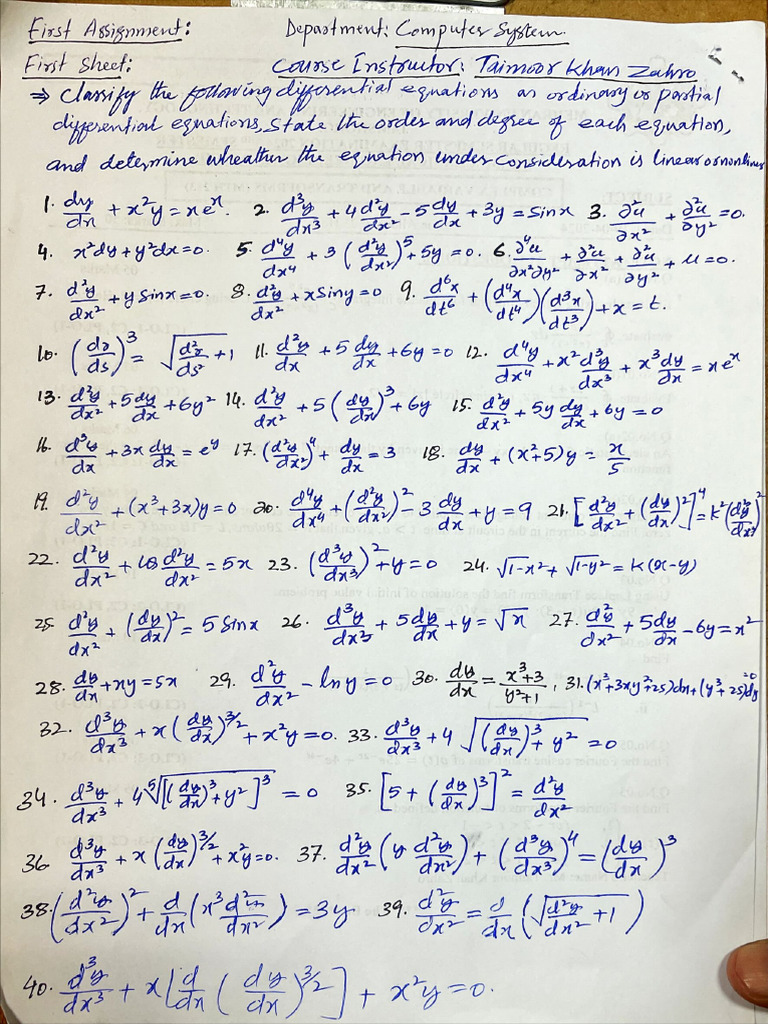 First Assignment: Department: Computer System.
First Sheet: Course Instructor: Taimoor Khan Zahro
⇒ Classify the following differential equations as ordinary or partial
differential equations, State the order and degree of each equation,
and determine wheather the equation under consideration is linear or nonlinear
1. dy/dx + x²y = xeˣ. 2. d³y/dx³ + 4d²y/dx² - 5dy/dx + 3y = sinx 3. ∂²u/∂x² + ∂²u/∂y² = 0.
4. x²dy + y²dx = 0. 5. d⁴y/dx⁴ + 3(d²y/dx²)⁵ + 5y = 0. 6. ∂⁴u/∂x²∂y² + ∂²u/∂x² + ∂²u/∂y² + u = 0.
7. d²y/dx² + y sinx = 0. 8. d²y/dx² + x Siny = 0 9. d⁶x/dt⁶ + (d⁴x/dt⁴)(d³x/dt³) + x = t.
10. (dr/ds)³ = √(d²r/ds² + 1) 11. d²y/dx + 5dy/dx + 6y = 0 12. d⁴y/dx⁴ + x²d³y/dx³ + x³dy/dx = xeˣ
13. d²y/dx² + 5dy/dx + 6y² 14. d²y/dx² + 5(dy/dx)³ + 6y 15. d²y/dx² + 5y dy/dx + 6y = 0
16. d³y/dx + 3x dy/dx = eʸ 17. (d²y/dx²)⁴ + dy/dx = 3 18. dy/dx + (x²+5)y = x/5
19. d²y/dx² + (x³+3x)y = 0 20. d⁴y/dx⁴ + (d²y/dx²)² - 3dy/dx + y = 9 21. [d²y/dx² + (dy/dx)²]⁴ = k²(d³y/dx³)²
22. d²y/dx² + d²y/dx² = 5x 23. (d³y/dx³)² + y = 0 24. √1-x² + √1-y² = k(x-y)
25. d²y/dx² + (dy/dx)² = 5 Sinx 26. d³y/dx³ + 5dy/dx + y = √x 27. d²y/dx² + 5dy/dx - 6y = x²
28. dy/dx + xy = 5x 29. d²y/dx² - lny = 0 30. dy/dx = x³+3/y²+1, 31. (x³+3xy²+25)dx + (y³+25)dy = 0
32. d³y/dx³ + x(dy/dx)^3/2 + x²y = 0. 33. d³y/dx³ + 4√((dy/dx)³ + y²) = 0
34. d³y/dx³ + 4 ⁵√[(dy/dx)³ + y²]³ = 0 35. [5 + (dy/dx)³]² = d²y/dx²
36. d³y/dx³ + x(dy/dx)^3/2 + x²y = 0. 37. d²y/dx²(y d²y/dx²) + (d³y/dx³)⁴ = (dy/dx)³
38. (d²y/dx²)² + d/dx(x³d²y/dx²) = 3y 39. d²y/dx² = d/dx(√(d²y/dx² + 1))
40. d³y/dx³ + x[d/dx(dy/dx)^3/2] + x²y = 0.